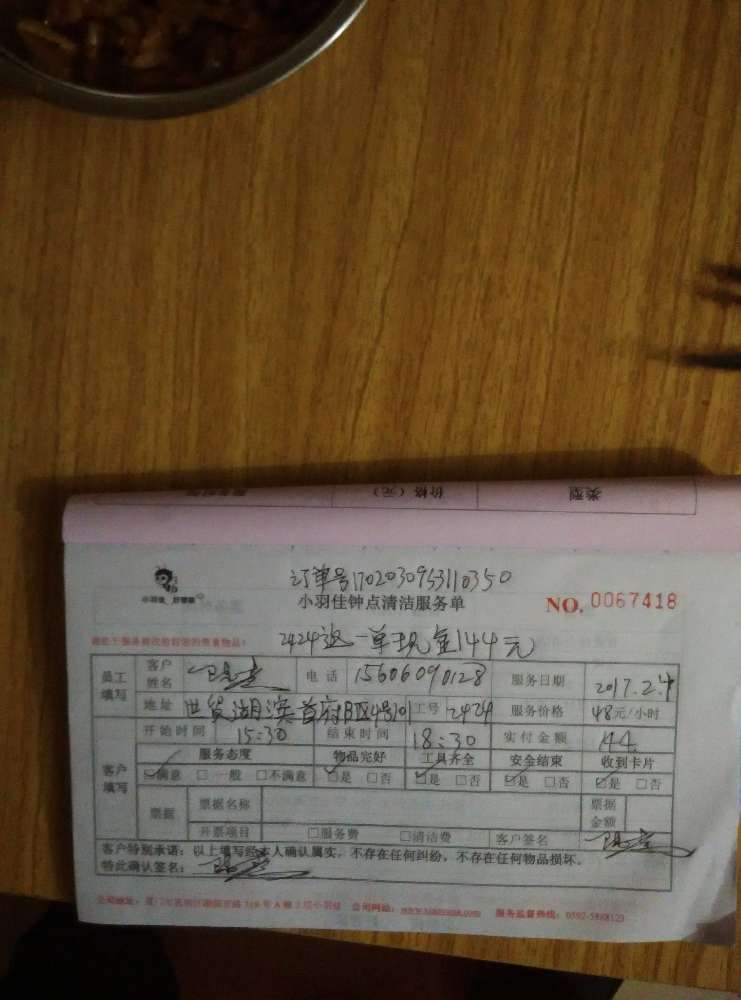 类型 价格（元）
订单号1702030953110350
小羽佳 好管家
小羽佳钟点清洁服务单
NO. 0067418
2424返一单现金144元
员工填写 客户姓名 电话 15606090128 服务日期 2017.2.4
地址 世贸湖滨首府B区4号101 工号 2424 服务价格 48元/小时
开始时间 15:30 结束时间 18:30 实付金额 144
客户填写 服务态度 物品完好 工具齐全 安全结束 收到卡片
☑满意 □一般 □不满意 ☑是 □否 ☑是 □否 ☑是 □否 ☑是 □否
票据 票据名称 票据金额
开票项目 □服务费 □清洁费 客户签名
客户特别承诺：以上填写经本人确认属实，不存在任何纠纷，不存在任何物品损坏。
特此确认签名：
公司地址： 公司网站： 服务监督热线：